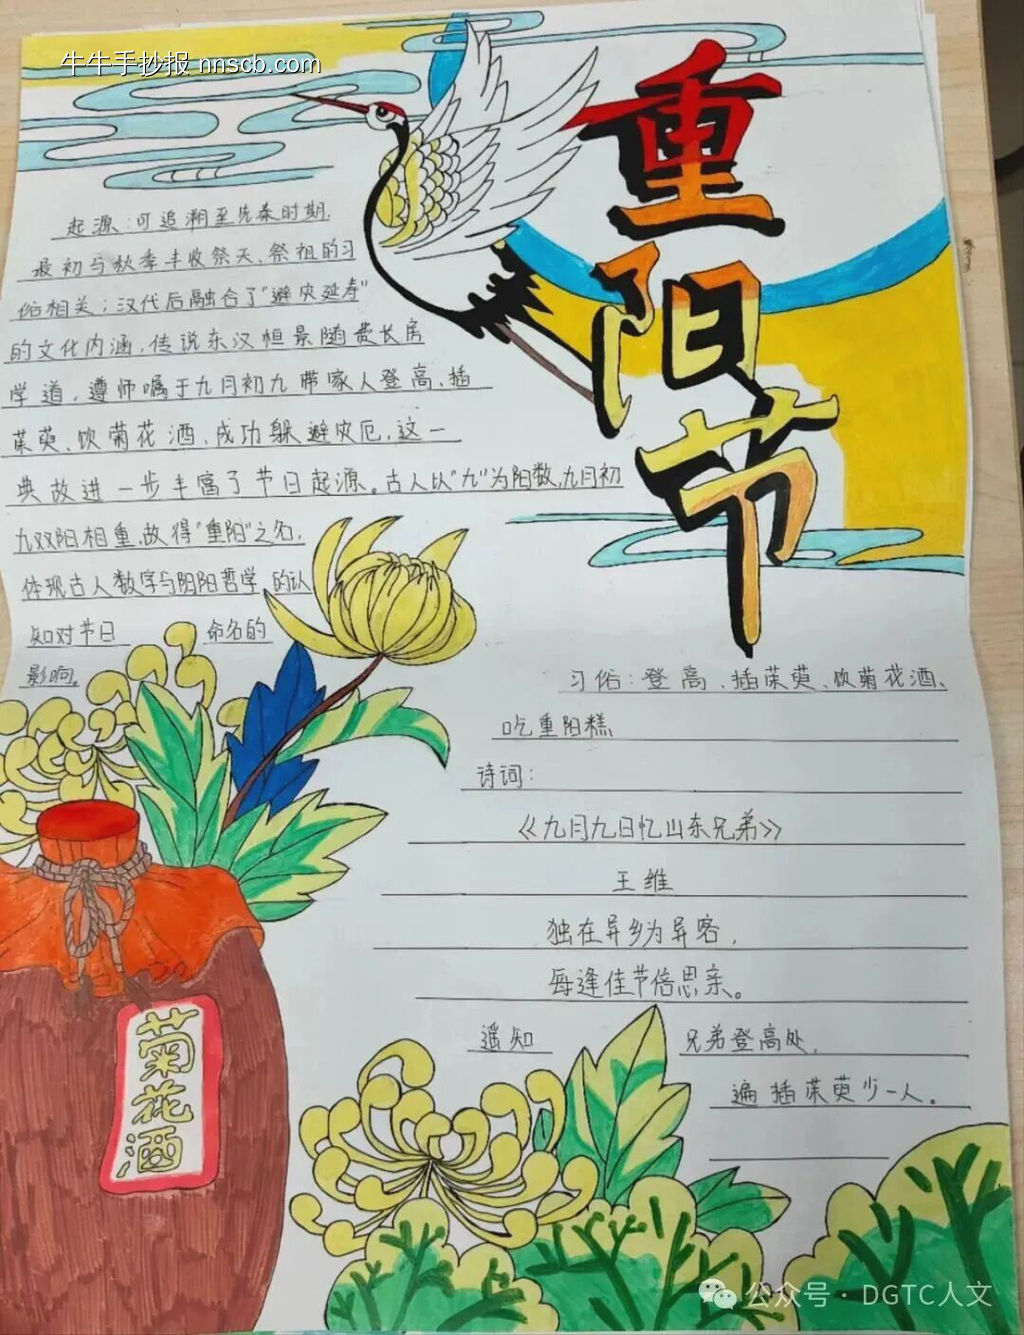 牛牛手抄报 nnscb.com
重阳节
起源:可追溯至先秦时期,
最初与秋季丰收祭天、祭祖的习
俗相关;汉代后融合了“避灾延寿”
的文化内涵,传说东汉恒景随费长房
学道,遵师嘱于九月初九带家人登高、插
茱萸、饮菊花酒,成功躲避灾厄,这一
典故进一步丰富了节日起源。古人以“九”为阳数,九月初
九双阳相重,故得“重阳”之名,
体现古人数字与阴阳哲学的认
知对节日命名的
影响。
习俗:登高、插茱萸、饮菊花酒、
吃重阳糕
诗词:
《九月九日忆山东兄弟》
王维
独在异乡为异客,
每逢佳节倍思亲。
遥知兄弟登高处,
遍插茱萸少一人。
菊花酒
公众号·DGTC人文